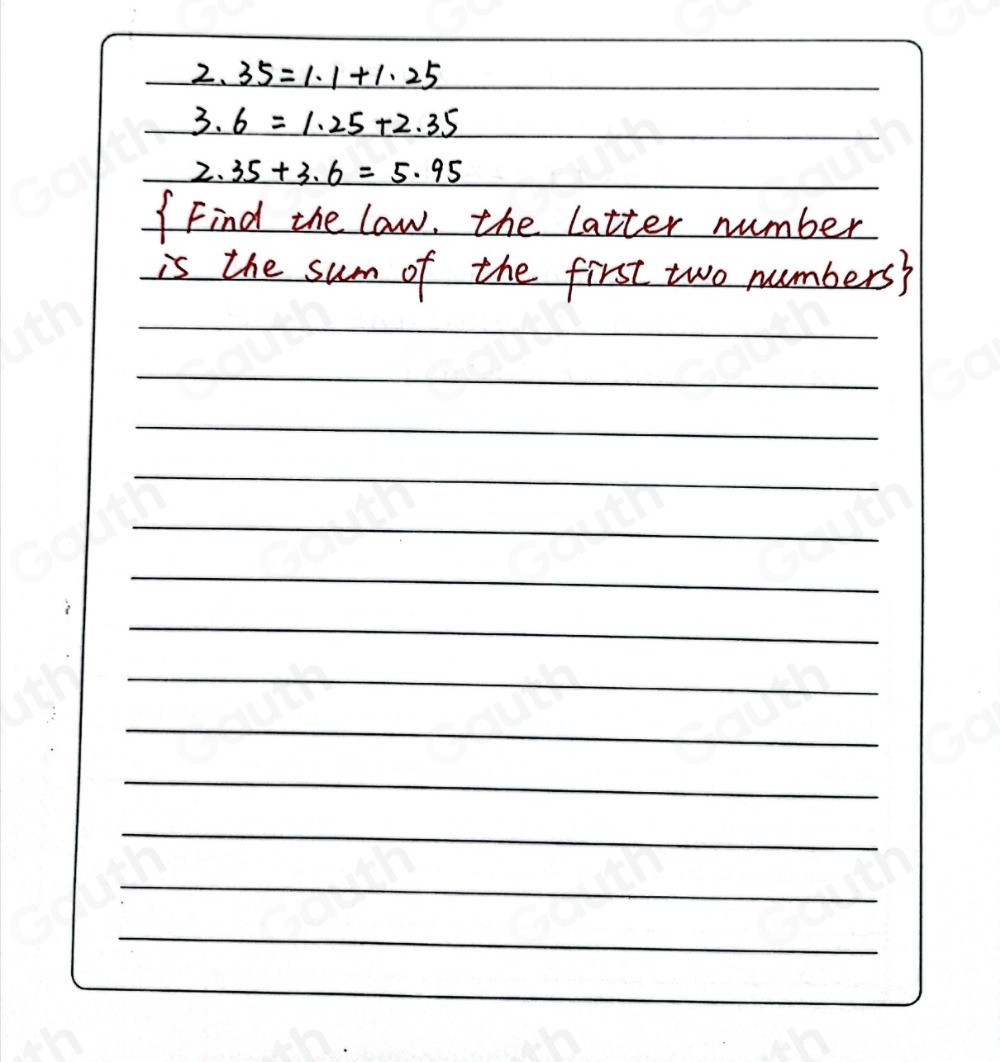 2.35=1.1+1.25
3.6 = 1.25+2.35
2.35+3.6 = 5.95
{Find the law. the latter number
is the sum of the first two numbers}